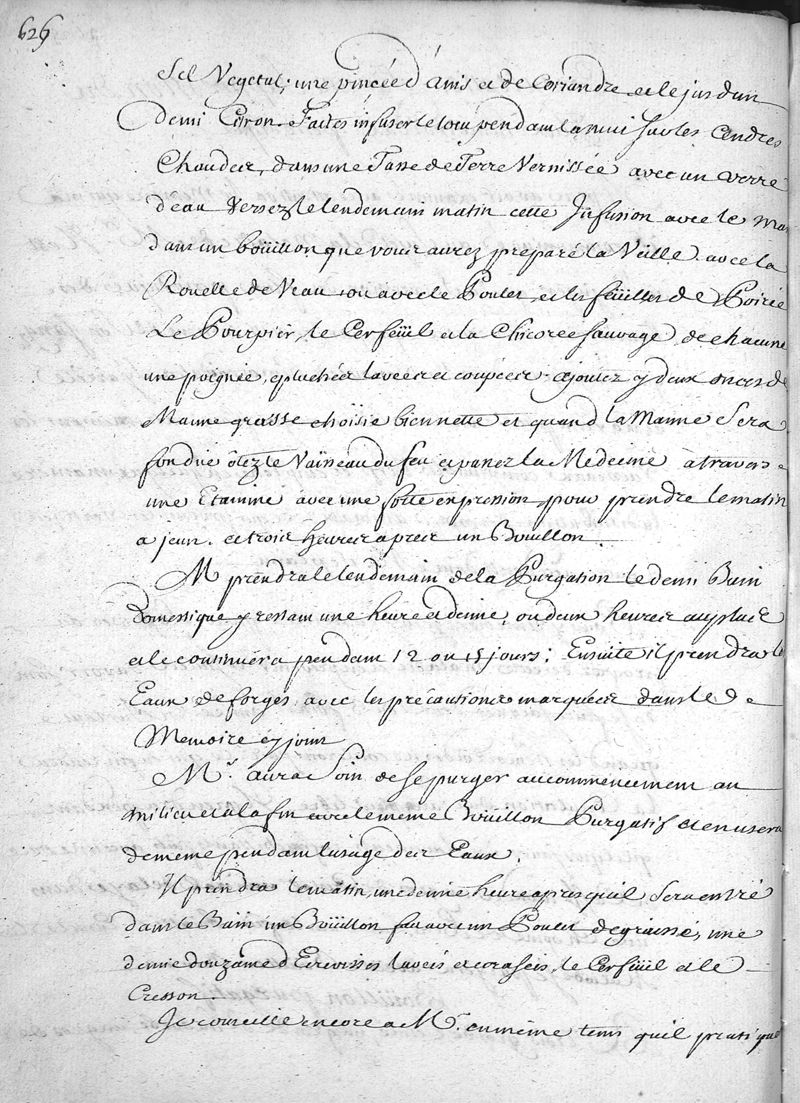 626
Sel Vegetal, une pincée d'Anis et de Coriandre et le jus d'un
demi Citron. Faites infuser le tout pendant la nuit sur les Cendres
Chaudes, dans une Tasse de Terre Vernissée avec un verre
d'eau Versez le lendemain matin cette Infusion avec le
dans un boüillon que vous aurez preparé la Veille avec la
Roüelle de Veau ou avec le Poulet et les feüilles de Poirée
Le Pourpier, le Cerfeüil et la Chicorée sauvage de chacune
une poignée, epluchées lavées et coupées ajoutez y deux onces de
Manne grasse choisie bien nette et quand la Manne Sera
fondüe ôtez le Vaisseau du feu et passez la Medecine à travers
une Etamine avec une forte expression pour prendre le matin
a jeun. et trois heures apres un Boüillon.
M prendra le lendemain de la Purgation le demi Bain
Domestique y restant une heure et demie, ou deux heures au plus
et le continüera pendant 12 ou 15 jours; Ensuite il prendra les
Eaux de forges avec les précautions marquées dans le
Memoire cy joint
Mr. aura Soin de se purger au commencement au
milieu et a la fin avec le meme Boüillon Purgatif et en usera
de meme pendant l'usage des Eaux.
Il prendra le matin une demie heure apres qu'il Sera entré
dans le Bain un Boüillon fait avec un Poulet degraissé, une
demie douzaine d'Ecrevisses lavées et ecrasées, le Cerfeüil et le
Cresson.
Je conseille encore a Mr. en même tems qu'il pratique